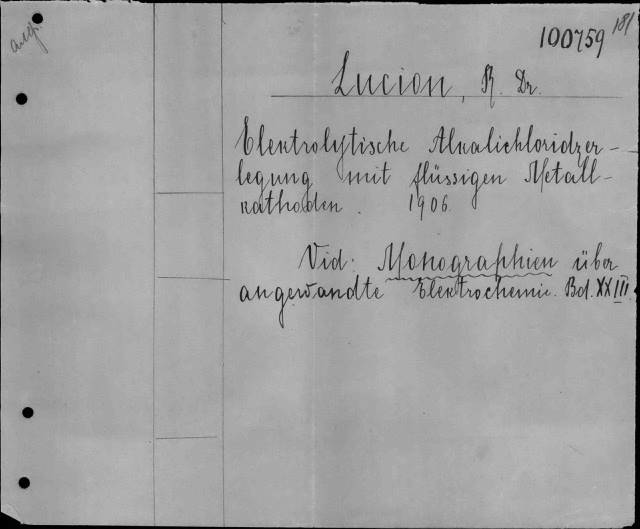 181
100759
Lucion, R. Dr.
Elektrolytische Alkalichloridzer-
legung mit flüssigen Metall-
kathoden. 1906.
Vid: Monographien über
angewandte Elektrochemie. Bd. XXIII.